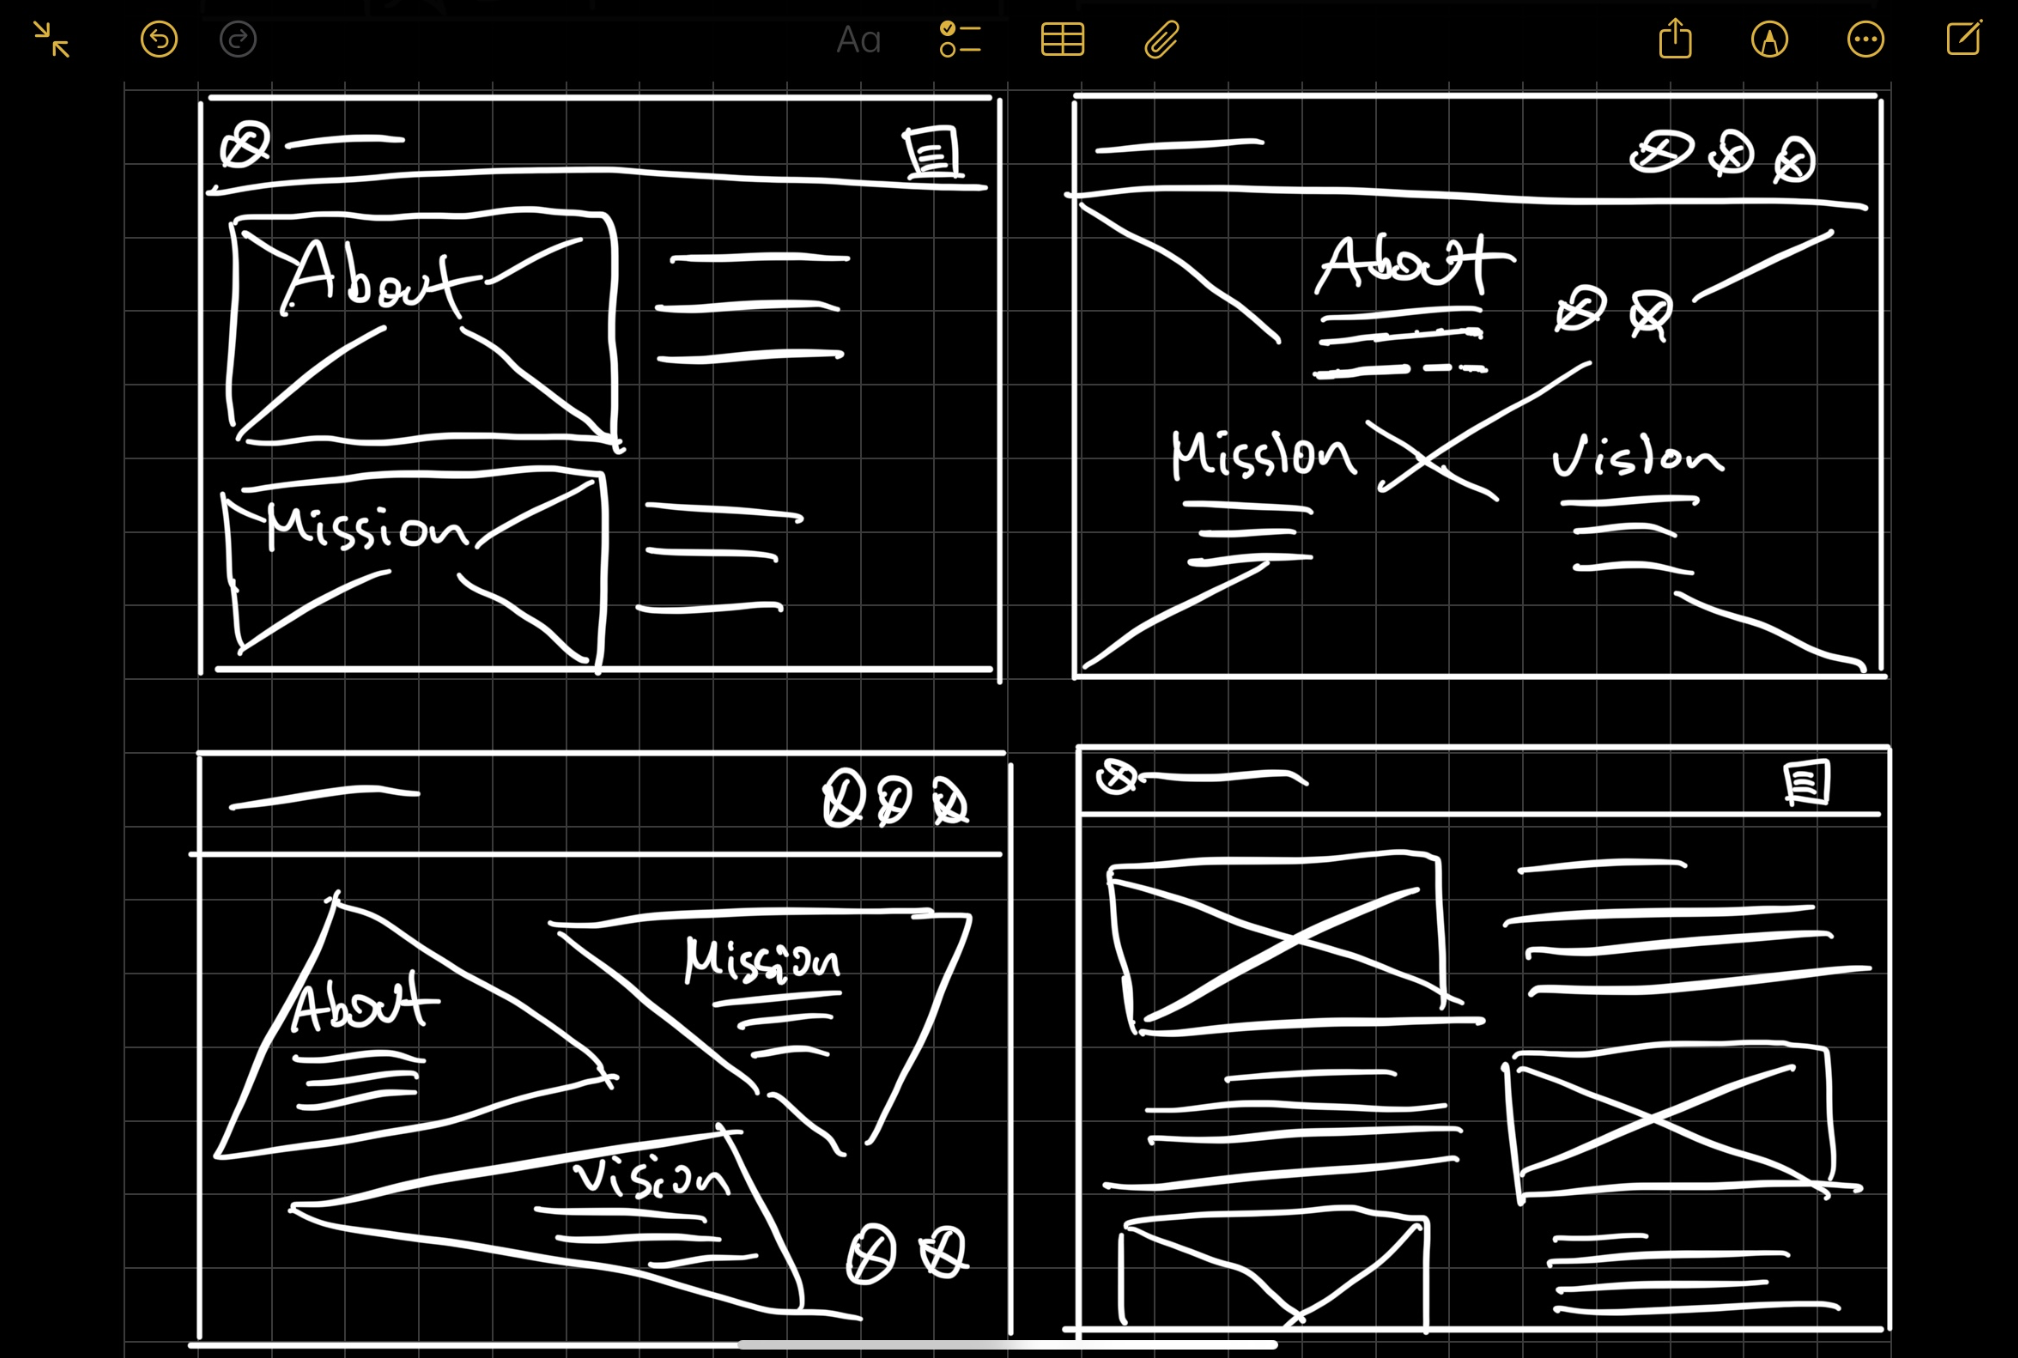 Aa
About
Mission
About
Mission
Vision
About
Mission
Vision